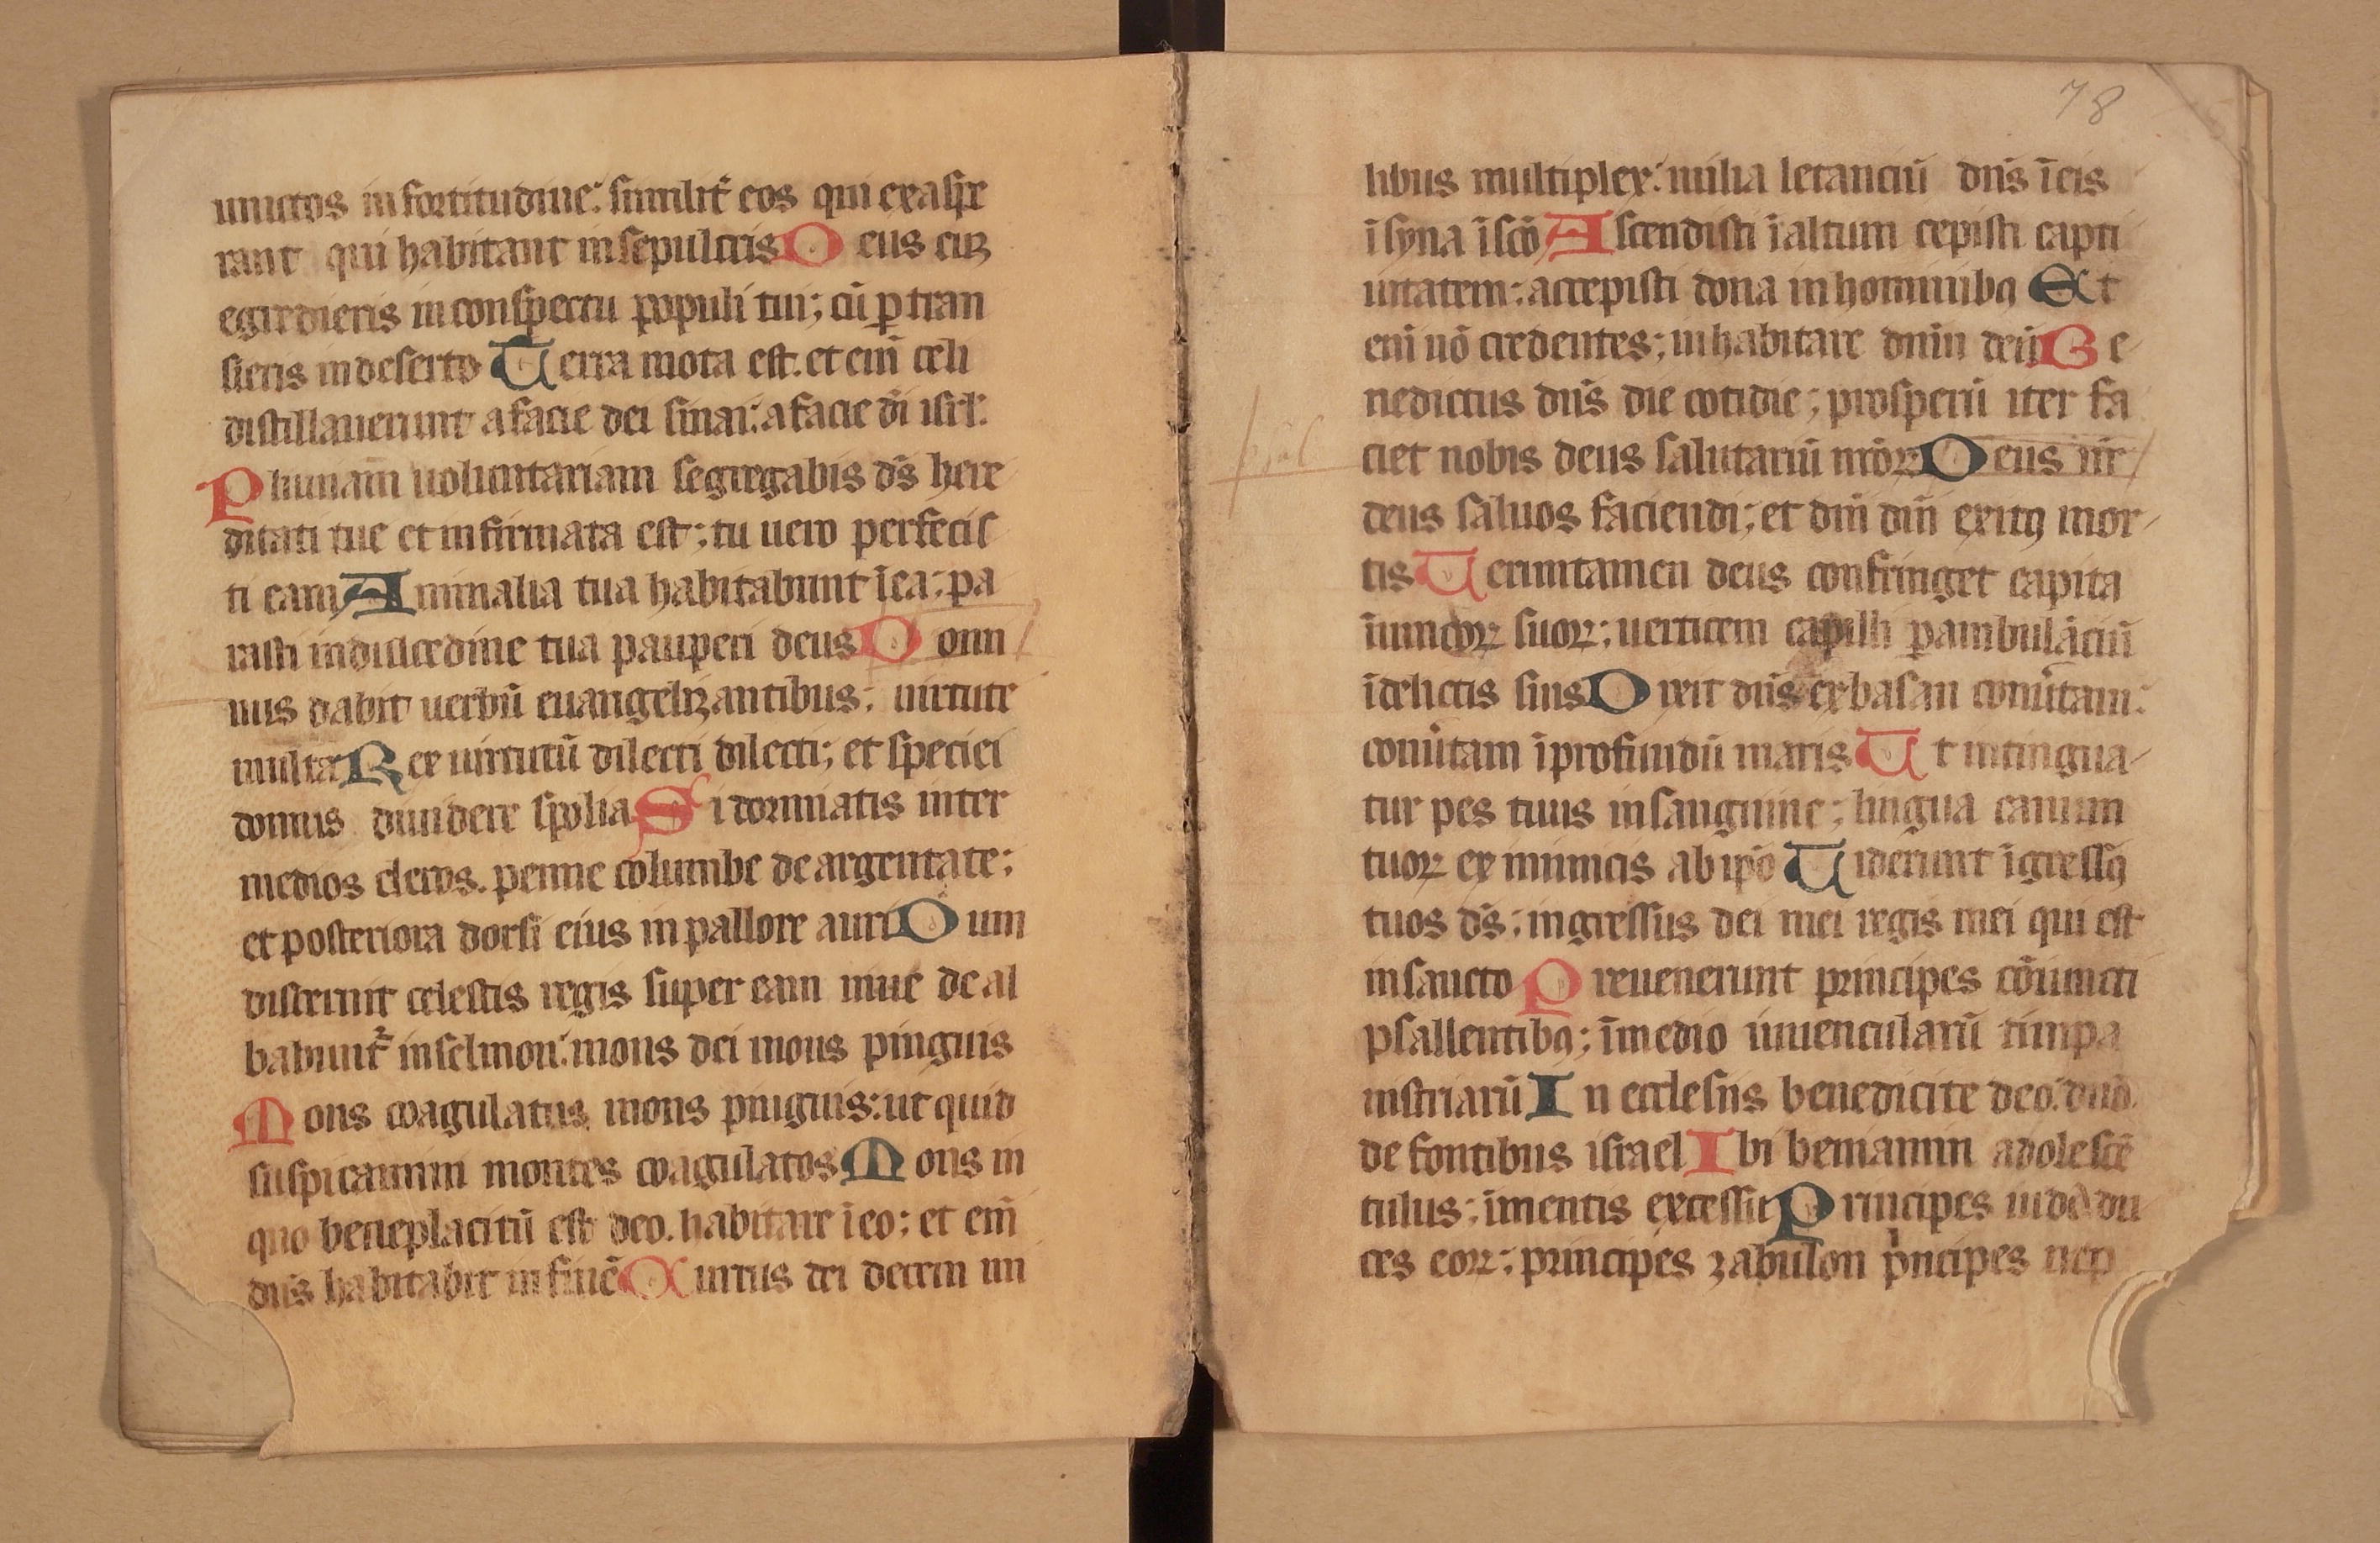 uinctos in fortitudine: similit̄ eos qui exaspe
rant qui habitant in sepulcris Deus cuꝫ
egredieris in conspectu populi tui; cū ꝑtran
sieris in deserto Terra mota est. et eni̅ celi
distillauerunt a facie dei sinai: a facie di̅ isrl̅:
Pluuiam̅ uoluntariam segregabis ds̅ here
ditati tue et infirmata est; tu uero perfecis
ti eam Animalia tua habitabunt i̅ea; pa
rasti in dulcedine tua pauperi deus Domi
nus dabit uerbū euangelizantibus; uirtute
multa Rex uirtutū dilecti dilecti; et speciei
domus diuidere spolia Si dormiatis inter
medios cleros. penne columbe de argentate;
et posteriora dorsi eius in pallore auri Dum
discernit celestis reges super eam niue de al
babunt᷑ in selmon: mons dei mons pinguis
Mons coagulatus mons pinguis: ut quid
suspicamini montes coagulatos Mons in
quo beneplacitū est deo. habitare i̅ eo; et eni̅
dn̅s habitabit in finē Currus dei decem mi
78
libus multiplex: milia letanciū dn̅s i̅eis
i̅ syna i̅ sc̅o Ascendisti i̅ altum cepisti capti
uitatem; accepisti dona in hominibꝯ Et
eni̅ nō credentes; inhabitare dn̅m deū Be
nedictus dn̅s die cotidie; prosperū iter fa
psal
ciet nobis deus salutariū nr̅oꝝ Deus nr̅
deus saluos faciendi; et dn̅i dn̅i exitꝯ mor
tis Ueruntamen deus confringet capita
i̅imicoꝝ suoꝝ; uerticem capilli ꝑambulāciū
i̅ delictis suis Dixit dn̅s ex basan conu̅tam:
conu̅tam i̅ profundū maris Ut intingua
tur pes tuus in sanguine; lingua canum
tuoꝝ ex inimicis ab ip̅o Uiderunt i̅gressꝯ
tuos ds̅; ingressus dei mei regis mei qui est
in sancto Preuenerunt principes cōiuncti
psallentibꝯ; i̅ medio iuuencularū timpa
nistriarū In ecclesiis benedicite deo: dn̅o
de fontibus israel Ibi beniamin adolescē
tulus; i̅ mentis excessu Principes iuda du
ces eoꝝ; principes zabulon pͥncipes nep